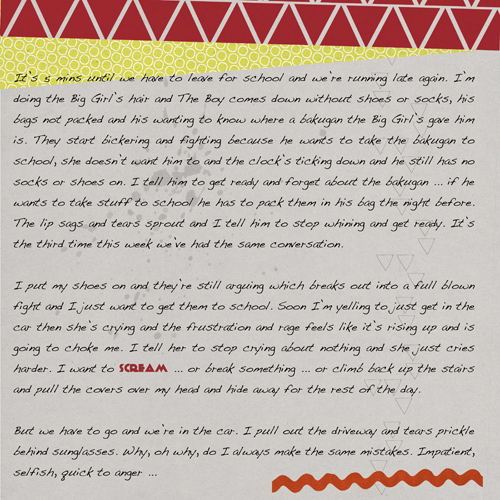 It's 5 mins until we have to leave for school and we're running late again. I'm
doing the Big Girl's hair and The Boy comes down without shoes or socks, his
bags not packed and his wanting to know where a bakugan the Big Girl's gave him
is. They start bickering and fighting because he wants to take the bakugan to
school, she doesn't want him to and the clock's ticking down and he still has no
socks or shoes on. I tell him to get ready and forget about the bakugan ... if he
wants to take stuff to school he has to pack them in his bag the night before.
The lip sags and tears sprout and I tell him to stop whining and get ready. It's
the third time this week we've had the same conversation.

I put my shoes on and they're still arguing which breaks out into a full blown
fight and I just want to get them to school. Soon I'm yelling to just get in the
car then she's crying and the frustration and rage feels like it's rising up and is
going to choke me. I tell her to stop crying about nothing and she just cries
harder. I want to SCREAM ... or break something ... or climb back up the stairs
and pull the covers over my head and hide away for the rest of the day.

But we have to go and we're in the car. I pull out the driveway and tears prickle
behind sunglasses. Why, oh why, do I always make the same mistakes. Impatient,
selfish, quick to anger ...